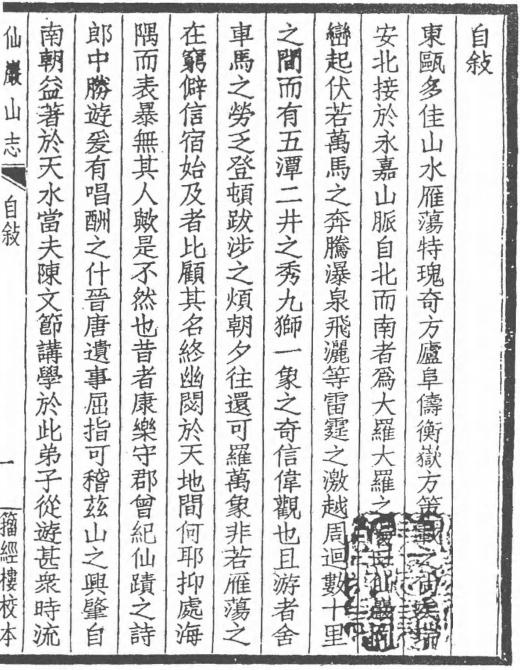 自敍
東甌多佳山水雁蕩特瑰奇方廬阜儔衡嶽方策
安北接於永嘉山脈自北而南者爲大羅大羅之
巒起伏若萬馬之奔騰瀑泉飛灑等雷霆之激越周迴數十里
之間而有五潭二井之秀九獅一象之奇信偉觀也且游者舍
車馬之勞乏登頓跋涉之煩朝夕往還可羅萬象非若雁蕩之
在窮僻信宿始及者比顧其名終幽閟於天地間何耶抑處海
隅而表暴無其人歟是不然也昔者康樂守郡曾紀仙蹟之詩
郎中勝遊爰有唱酬之什晉唐遺事屈指可稽茲山之興肇自
南朝益著於天水當夫陳文節講學於此弟子從遊甚衆時流
仙巖山志 自敍 一 籀經樓校本